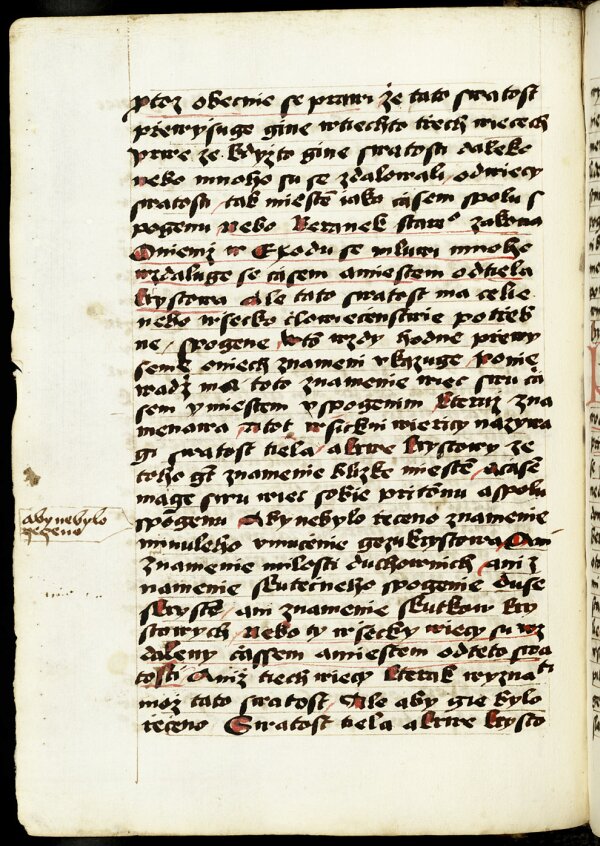 ptoz obecnie se prawi že tato swatost
přewyssuge gine wtiechto třech wiecech
prwe že kdyžto gine swatosti daleko
nebo mnoho su se zdalowali odwiecy
swatosti tak miestē iako časem spolu s
pogenu nebo Beranek stareº zakona
Oniemž w Exodu se mluwi mnoho
wzdaluge se časem amiestem odtiela
krystowa Ale tato swatost ma celie
nebo wsecko člowiečenstwie potřeb
ne spogene wtō wzdy hodne přewy
sene oniech znameni vkazuge ponie
wadž ma toto znamenie wiec swu ča
sem ymiestem vspogenim kteruž zna
menawa Atot wsickni wierzicy nazywa
gi swatost tiela akrwe krystowy že
toho gt znamenie blizke miestē ačasē
mage swu wiec sobie pritōnu aspolu
spōgenu Aby nebylo řečeno znamenie
minuleho vmučenie gezukrystowa Ani
znamenie milosti duchownich ani z
namenie skutečneho spogenie duse
skrystē ani znamenie skutkow kry
stowych nebo ty wsecky wiecy su wz
daleny časem amiestem odteto swa
tosti Aniž tiech wiecy kterak wyznati
mož tato swatost Ale aby gie bylo
řečeno Swatost tiela akrwe krysto
aby nebylo
řečeno